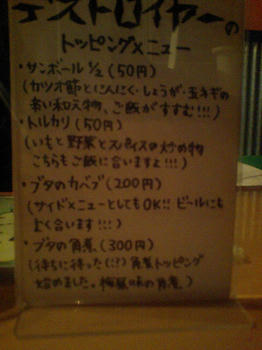 デストロイヤーの
トッピング×ニュー
・サンボール ½ (50円)
(カツオ節とにんにく・しょうが・玉ネギの
辛い和え物、ご飯がすすむ!!!)
・トルカリ (50円)
(いもと野菜とスパイスの炒め物
こちらもご飯に合いますよ!!!)
・ブタのカバブ (200円)
(サイド×ニューとしてもOK!! ビールにも
よく合います!!!)
・ブタの角煮 (300円)
(待ちに待った(!?)角煮トッピング
始めました。梅風味の角煮)